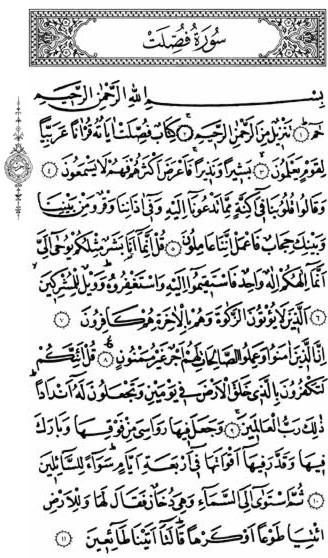 سُورَةُ فُصِّلَتْ
بِسْمِ اللّٰهِ الرَّحْمٰنِ الرَّحِيمِ
حٰمٓ ﴿١﴾ تَنْزِيلٌ مِنَ الرَّحْمٰنِ الرَّحِيمِ ﴿٢﴾ كِتَابٌ فُصِّلَتْ اٰيَاتُهُ قُرْاٰنًا عَرَبِيًّا
لِقَوْمٍ يَعْلَمُونَ ﴿٣﴾ بَشِيرًا وَنَذِيرًا فَاَعْرَضَ اَكْثَرُهُمْ فَهُمْ لَا يَسْمَعُونَ ﴿٤﴾
وَقَالُوا قُلُوبُنَا فِي اَكِنَّةٍ مِمَّا تَدْعُونَا اِلَيْهِ وَفِي اٰذَانِنَا وَقْرٌ وَمِنْ بَيْنِنَا
وَبَيْنِكَ حِجَابٌ فَاعْمَلْ اِنَّنَا عَامِلُونَ ﴿٥﴾ قُلْ اِنَّمَا اَنَا بَشَرٌ مِثْلُكُمْ يُوحٰى اِلَيَّ
اَنَّمَا اِلٰهُكُمْ اِلٰهٌ وَاحِدٌ فَاسْتَقِيمُوا اِلَيْهِ وَاسْتَغْفِرُوهُ وَوَيْلٌ لِلْمُشْرِكِينَ
﴿٦﴾ اَلَّذِينَ لَا يُؤْتُونَ الزَّكٰوةَ وَهُمْ بِالْاٰخِرَةِ هُمْ كَافِرُونَ ﴿٧﴾
اِنَّ الَّذِينَ اٰمَنُوا وَعَمِلُوا الصَّالِحَاتِ لَهُمْ اَجْرٌ غَيْرُ مَمْنُونٍ ﴿٨﴾ قُلْ اَئِنَّكُمْ
لَتَكْفُرُونَ بِالَّذِي خَلَقَ الْاَرْضَ فِي يَوْمَيْنِ وَتَجْعَلُونَ لَهُ اَنْدَادًا
ذٰلِكَ رَبُّ الْعَالَمِينَ ﴿٩﴾ وَجَعَلَ فِيهَا رَوَاسِيَ مِنْ فَوْقِهَا وَبَارَكَ
فِيهَا وَقَدَّرَ فِيهَا اَقْوَاتَهَا فِي اَرْبَعَةِ اَيَّامٍ سَوَاءً لِلسَّائِلِينَ
﴿١٠﴾ ثُمَّ اسْتَوٰى اِلَى السَّمَاءِ وَهِيَ دُخَانٌ فَقَالَ لَهَا وَلِلْاَرْضِ
ائْتِيَا طَوْعًا اَوْ كَرْهًا قَالَتَا اَتَيْنَا طَائِعِينَ ﴿١١﴾